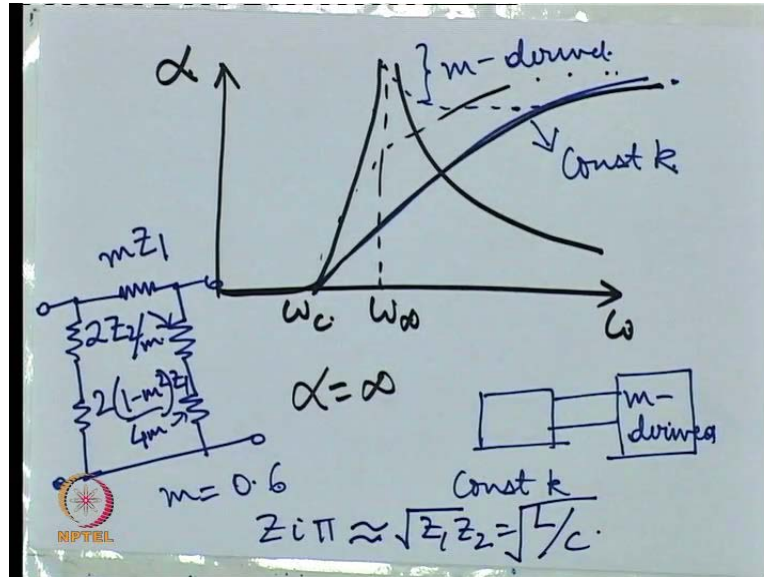 α
} m-derive
Const k
mZ1
ωc
ω∞
ω
2Z2/m
2(1-m²)Z1
4m
α=∞
m-
derived
m = 0.6
Const k
Ziπ ≈ √Z1Z2 = √L/c
NPTEL